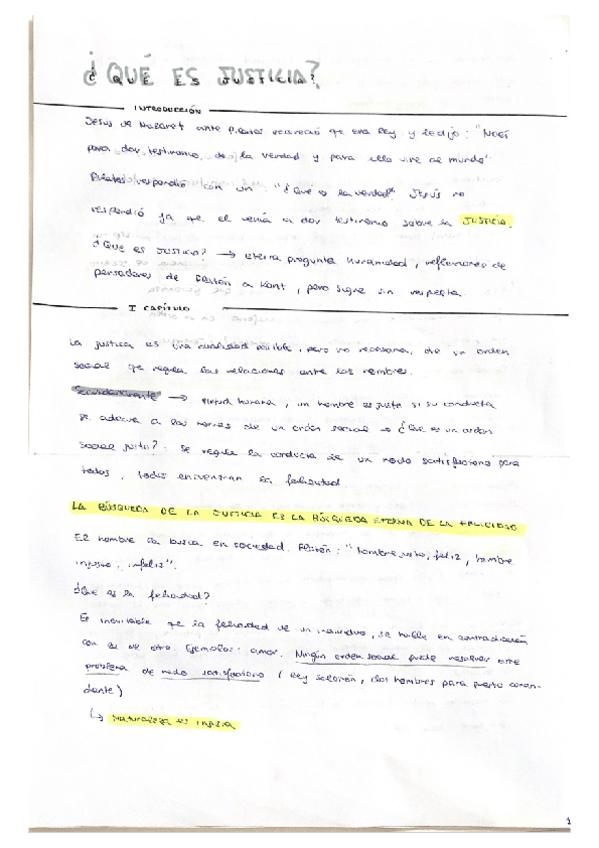 ¿QUÉ ES JUSTICIA?
INTRODUCCIÓN
Jesús de Nazaret ante Pilatos reconoció que era Rey y le dijo: "Nací
para dar testimonio de la verdad y para ello vine al mundo"
Pilatos respondió con un "¿Qué es la verdad" Jesús no
respondió ya que el venía a dar testimonio sobre la JUSTICIA.
¿Qué es JUSTICIA? → eterna pregunta humanidad, reflexiones de
pensadores de Platón a Kant, pero sigue sin respuesta.
I CAPÍTULO
La justicia es una cualidad posible, pero no necesaria, de un orden
social que regula las relaciones entre los hombres.
Secundariamente → virtud humana, un hombre es justo si su conducta
se adecua a las normas de un orden social → ¿Qué es un orden
social justo?: Se regula la conducta de un modo satisfactorio para
todos, todos encuentran la felicidad.
LA BÚSQUEDA DE LA JUSTICIA ES LA BÚSQUEDA ETERNA DE LA FELICIDAD
El hombre la busca en sociedad. Platón: "hombre justo, feliz, hombre
injusto, infeliz".
¿Qué es la felicidad?
Es inevitable que la felicidad de un individuo, se halle en contradicción
con la de otro. Ejemplos: amor. Ningún orden social puede resolver este
problema de modo satisfactorio (Rey Salomón, dos hombres para puesto coman-
dante)
↳ Naturaleza es injusta
1